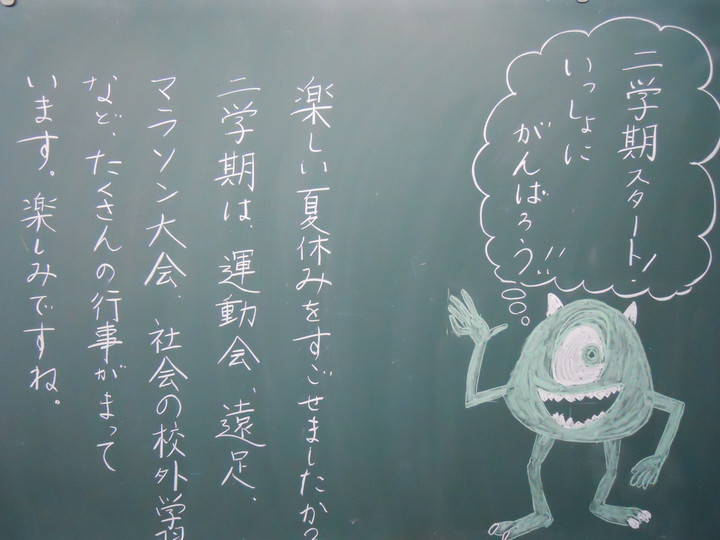 二学期スタート!
いっしょに
がんばろう!!
楽しい夏休みをすごせましたか?
二学期は、運動会、遠足、
マラソン大会、社会の校外学習
など、たくさんの行事がまって
います。楽しみですね。